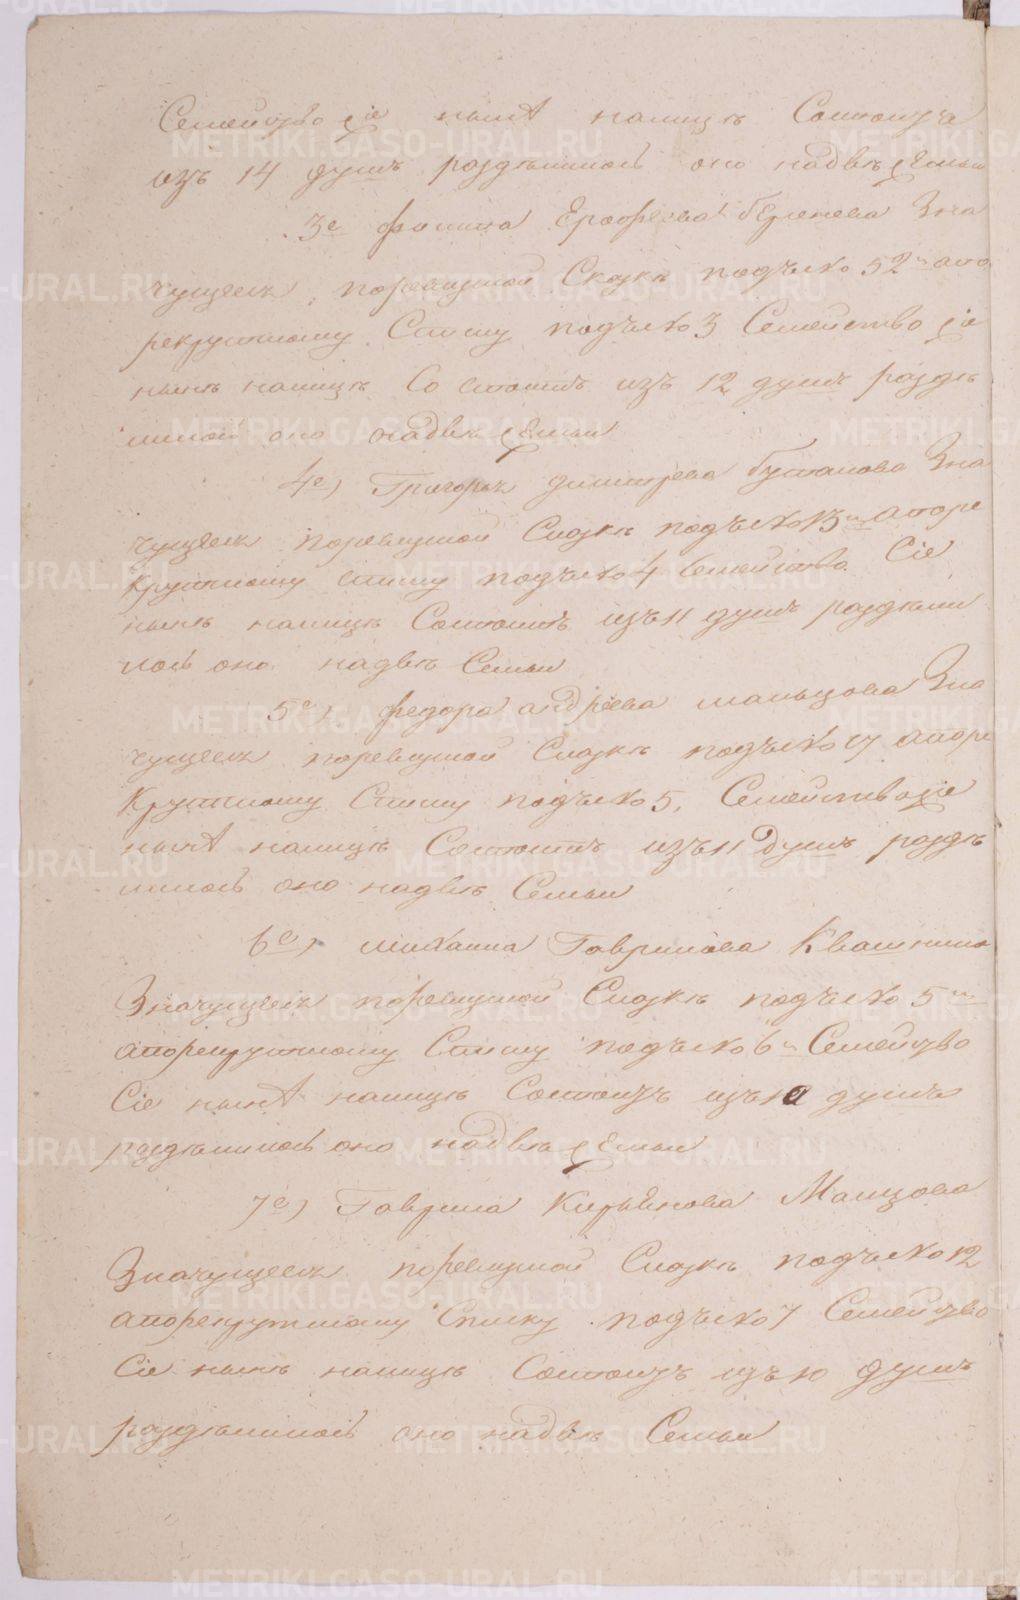 Семейство сіе нынѣ налицѣ Состоитъ
изъ 14 душъ раздѣлилось оно надвѣ семьи
3е Филипа Ерофеева Зна
чущемъ поревиской Скаскѣ подъ № 52м апо
рекрутскому Списку подъ № 3 Семейство сіе
нынѣ налицѣ Состоитъ изъ 12 душъ раздѣ
лилось оно надвѣ семьи
4е) Григорья Димитрева Зна
чущемъ поревиской Скаскѣ подъ № 13м апоре
крутскому списку подъ № 4 Семейство Сіе
нынѣ налицѣ Состоитъ изъ 11 душъ раздѣли
лось оно надвѣ Семьи
5е) Федора Андреева Мальцова Зна
чущемъ поревиской Скаскѣ подъ № 17 апоре
крутскому Списку подъ № 5, Семейство сіе
нынѣ налицѣ Состоитъ изъ 11 Душъ раздѣ
лилось оно надвѣ Семьи
6е) Михаила Гаврилова Квашнина
Значущемъ поревиской Скаскѣ подъ № 5м
апорекрутскому Списку подъ № 6м Семейство
Сіе нынѣ налицѣ Состоитъ изъ 10 душъ
раздѣлилось оно надвѣ семьи
7е) Гаврила Кирьянова Малцова
Значущемъ поревиской Скаскѣ подъ № 12
апорекрутскому Списку подъ № 7 Семейство
Сіе нынѣ налицѣ Состоитъ изъ 10 душъ
раздѣлилось оно надвѣ Семьи
METRIKI.GASO-URAL.RU